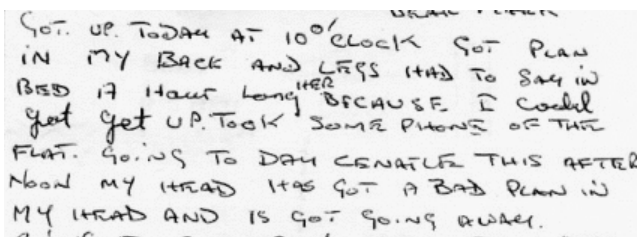 GOT. UP. TODAY AT 10 O'CLOCK GOT PLAN
IN MY BACK AND LEGS HAD TO SAY IN
BED A HOUR LONG HER BECAUSE I Could
get get UP. TOOK SOME PHONE OF THE
FLAT. GOING TO DAY CENATLE THIS AFTER
NOON MY HEAD HAS GOT A BAD PLAN IN
MY HEAD AND IS GOT GOING AWAY.